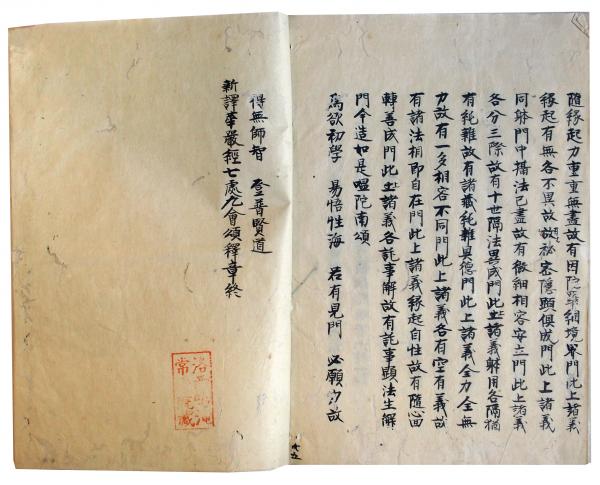 隨緣起力重重無盡故有因陀羅網境界門此上諸義
緣起有無各不異故說祕密隱顯俱成門此上諸義
同躰門中攝法已盡故有微細相容安立門此上諸義
各分三際故有十世隔法異成門此上諸義躰用各隔猶
有純雜故有諸藏純雜具德門此上諸義全力全無
力故有一多相容不同門此上諸義各有空有義故
有諸法相即自在門此上諸義緣起自性故有隨心回
轉善成門此上諸義各託事解故有託事顯法生解
門今造如是嗢陀南頌
為欲初學 易悟性海 若有見門 必願力故
得無師智 登普賢道
新譯華嚴經七處九會頌釋章終